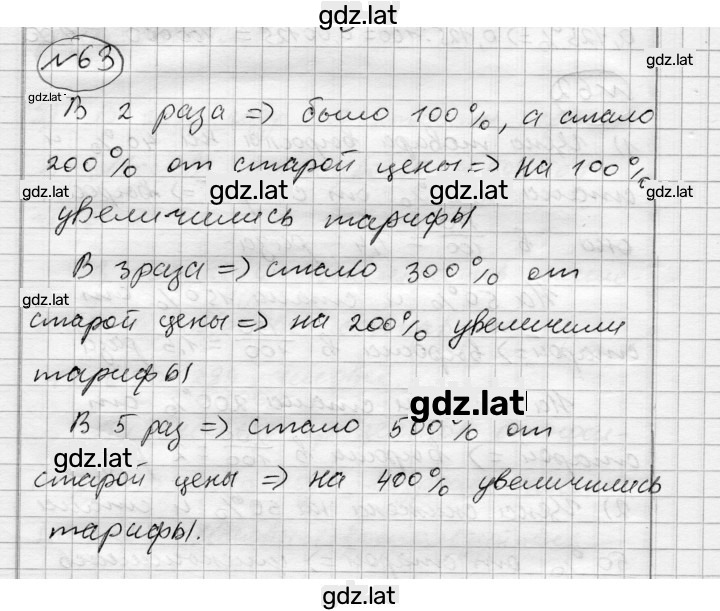 gdz.lat
№63
gdz.lat
gdz.lat
В 2 раза => было 100%, а стало
200% от старой цены => на 100%
gdz.lat gdz.lat gdz.lat
увеличились тарифы
В 3 раза => стало 300% от
gdz.lat gdz.lat
старой цены => на 200% увеличили
тарифы
gdz.lat
В 5 раз => стало 500% от
gdz.lat
старой цены => на 400% увеличились
тарифы.
gdz.lat